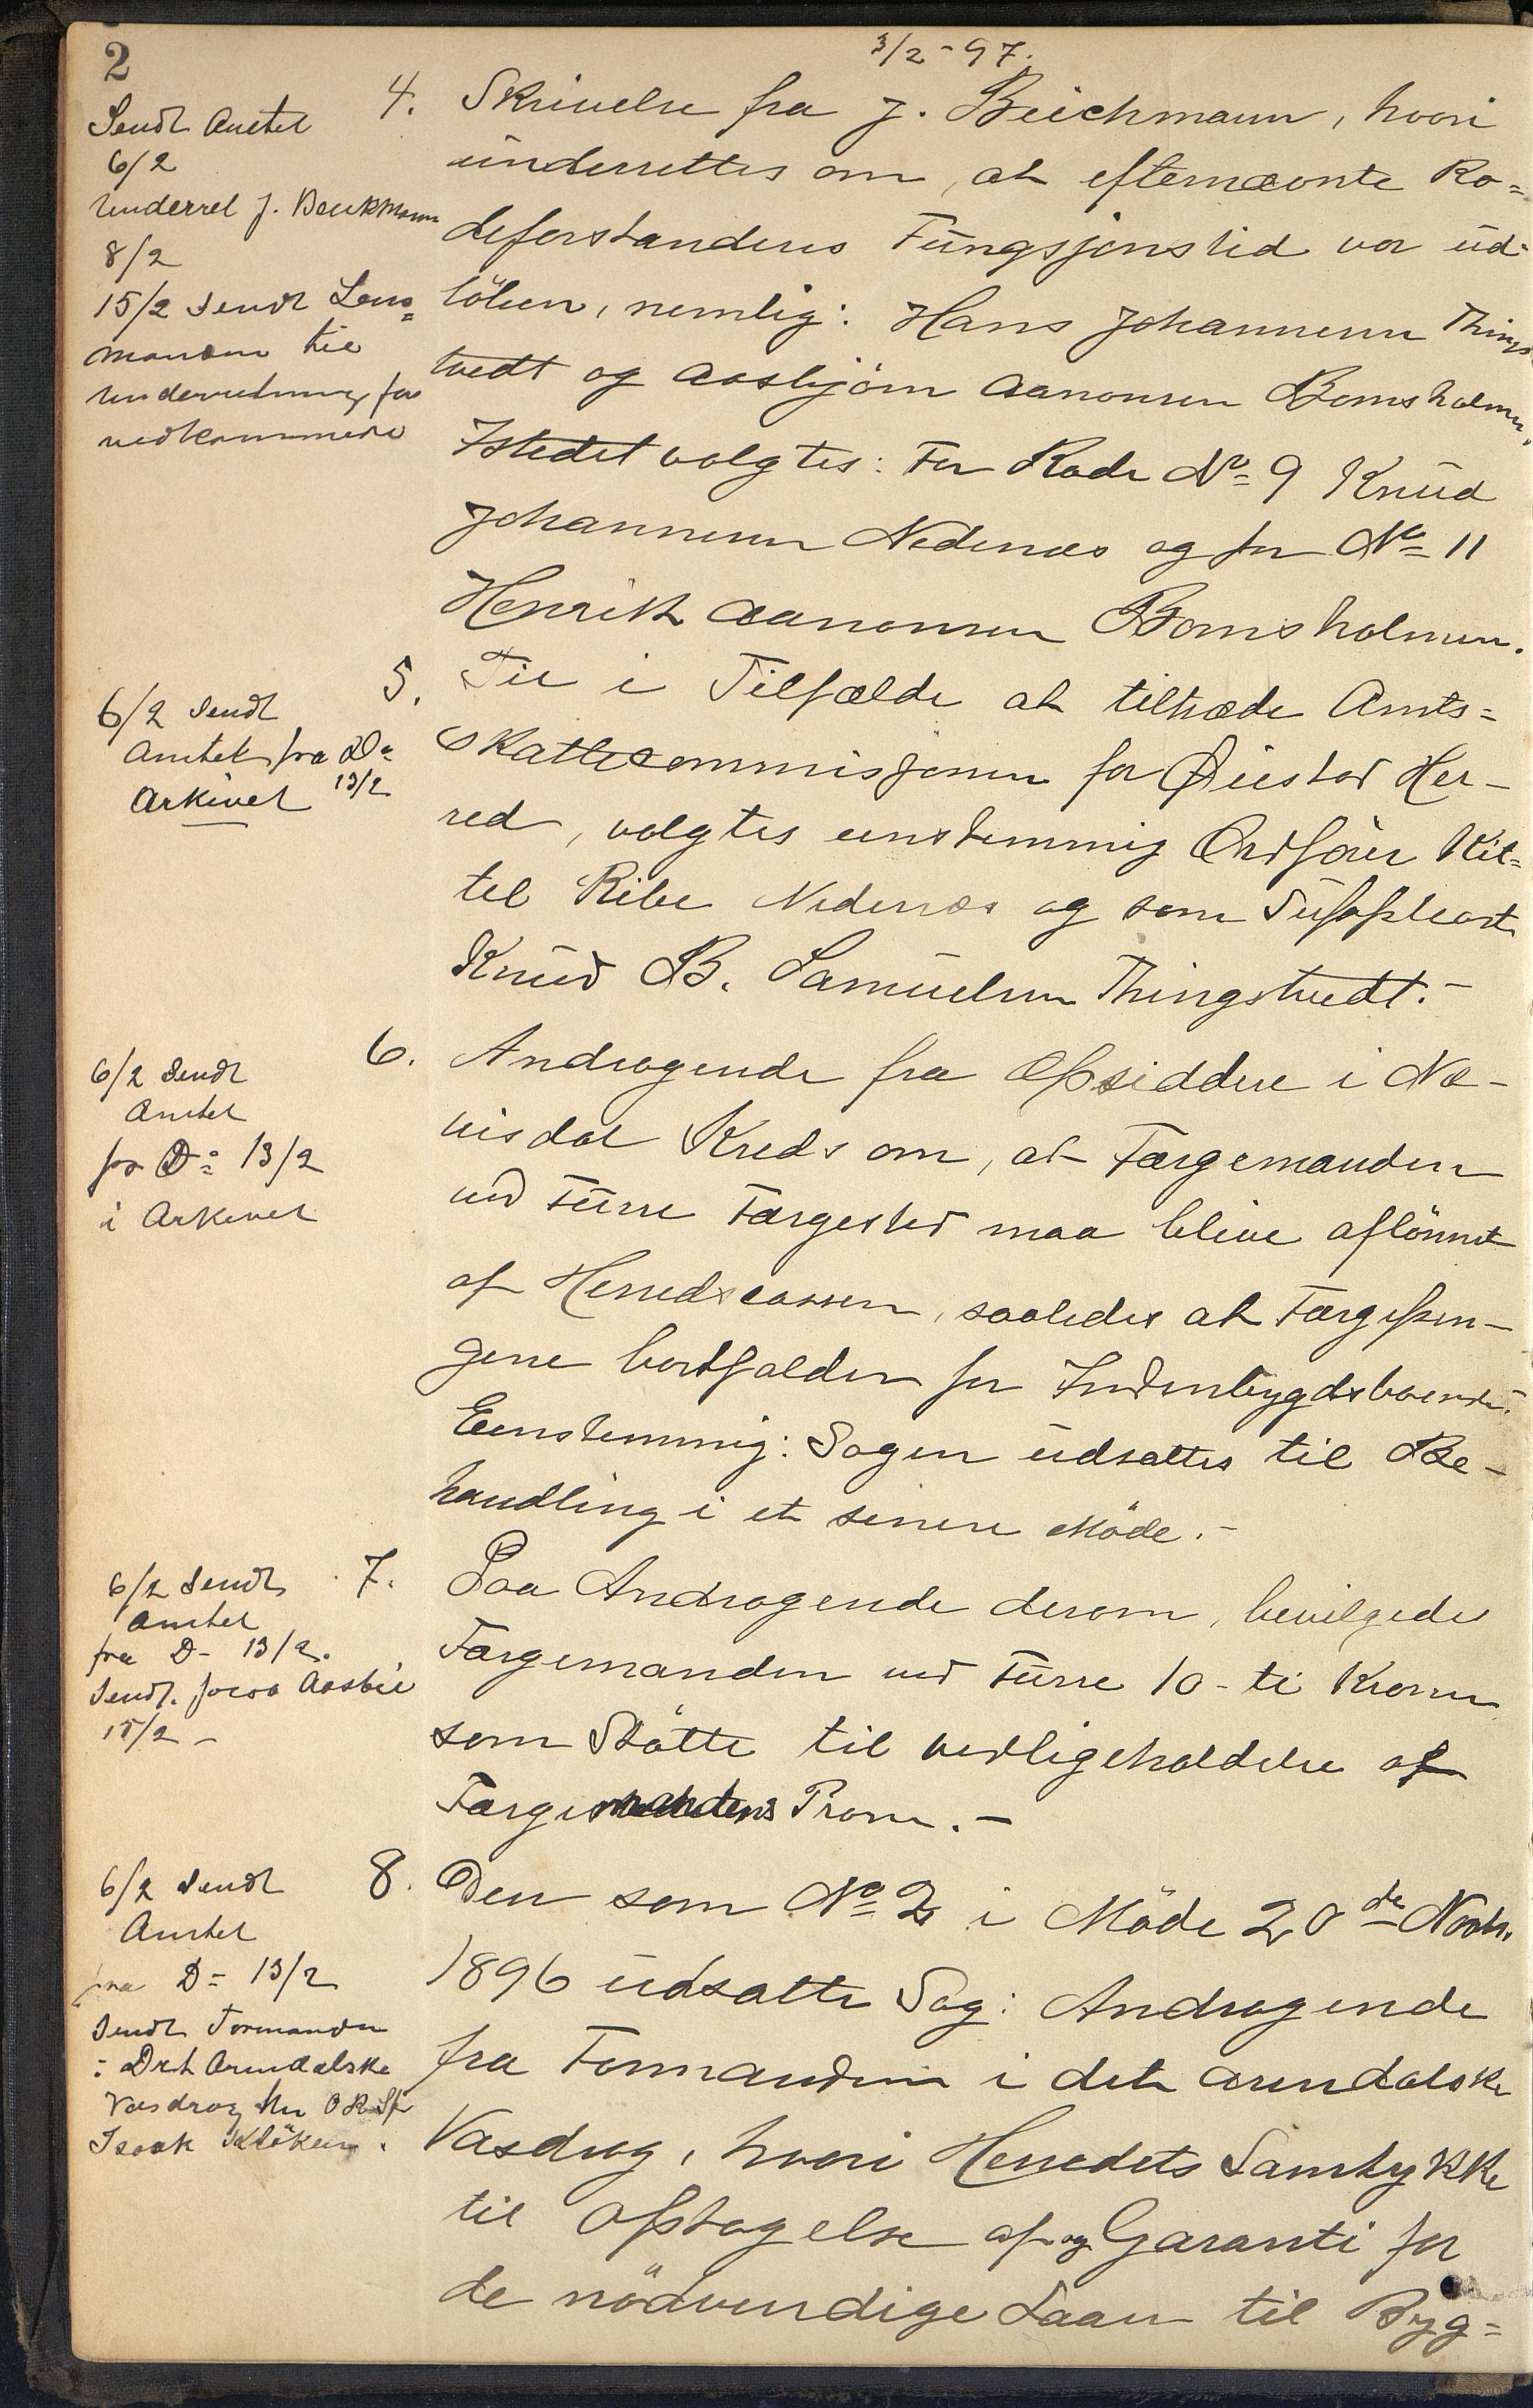 2
3/2 - 97.
Sendt Amtet
6/2
Underret J. Beichmann
8/2
15/2 sendt Lens=
manden til
underretning for
vedkommende
4. Skrivelse fra J. Beichmann, hvori
underrettes om, at efternævnte Ro=
deforstanderes Fungsjonstid var ud=
löben, nemlig: Hans Johannesen Things
tvedt og Aasbjörn Aanonsen Bomsholmen.
Istedet valgtes: For Rode No 9 Knud
Johannesen Nedenæs og for No 11
Henrik Aanonsen Bomsholmen.
6/2 sendt
Amtet fra Do
13/2
Arkivet
5. Til i Tilfælde at tiltræde Amts=
skattecommisjonen for Øiestad Her-
red, valgtes eenstemmig Ordförer Kit=
tel Ribe Nedenæs og som Suppleant
Knud B. Samuelsen Thingstvedt.-
6/2 sendt
Amtet
fra Do 13/2
i Arkivet
6. Andragende fra Opsiddere i Næ-
visdal Kreds om, at Færgemanden
ved Furre Færgested maa blive aflönnet
af Herredscassen, saaledes at Færgepen-
gene bortfalder for Indenbygdsboende.-
Eenstemmig: Sagen udsattes til Be-
handling i et senere Möde.-
6/2 sendt
Amtet
fra D- 13/2.
Sendt Aasbie
15/2 -
7. Paa Andragende derom, bevilgedes
Færgemanden ved Furre 10 - ti Kroner
som Stötte til vedligeholdelse af
Færgemandens Pram.-
6/2 sendt
Amtet
fra D= 13/2
Sendt Formanden
i Det Arendalske
Vasdrag Hr
Isaak Klöker.
8. Den som No 2 i Möde 20de Novbr.
1896 udsatte Sag: Andragende
fra Formanden i det arendalske
Vasdrag, hvori Herredets Samtykke
til Optagelse af og Garanti for
de nödvendige Laan til Byg=